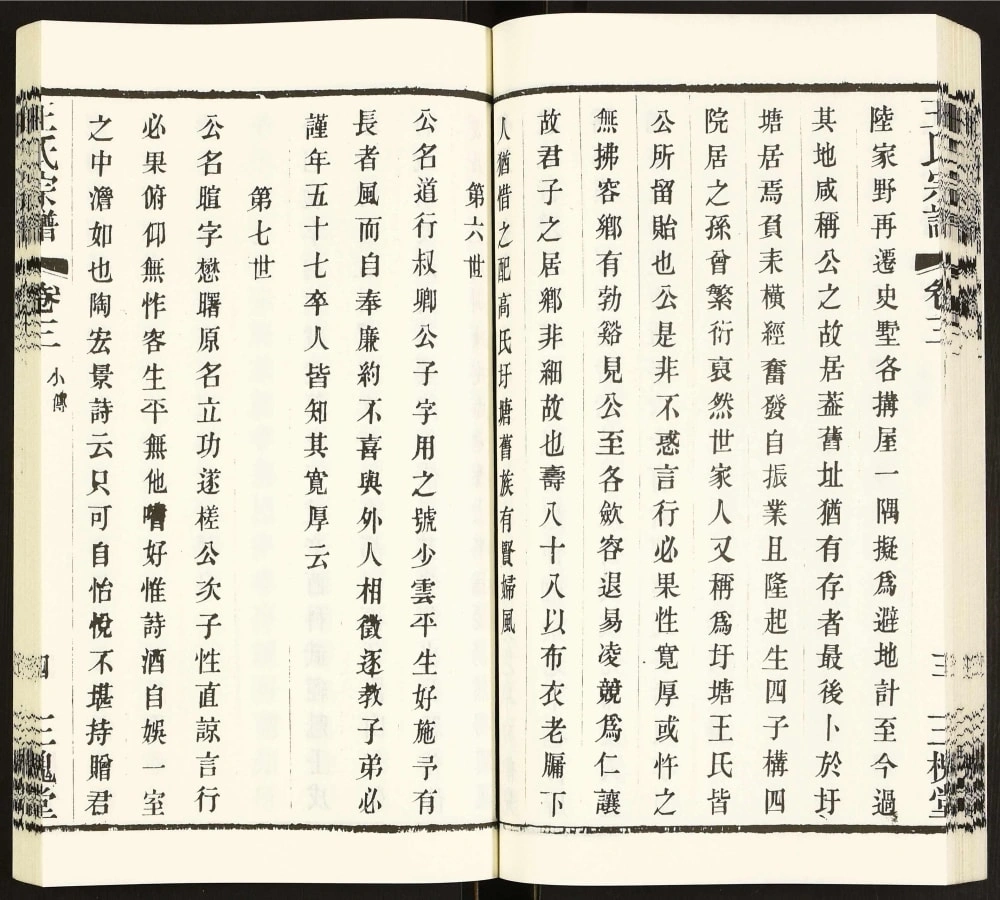 王氏宗譜 卷三 三 三槐堂
陸家野再遷史墅各搆屋一隅擬爲避地計至今過
其地咸稱公之故居葢舊址猶有存者最後卜於圩
塘居焉負耒橫經奮發自振業且隆起生四子構四
院居之孫曾繁衍裒然世家人又稱爲圩塘王氏皆
公所留貽也公是非不惑言行必果性寬厚或忤之
無拂容鄉有勃谿見公至各歛容退易凌競爲仁讓
故君子之居鄉非細故也壽八十八以布衣老牖下
人猶惜之配高氏圩塘舊族有賢婦風
第六世
公名道行叔卿公子字用之號少雲平生好施予有
長者風而自奉廉約不喜與外人相徵逐教子弟必
謹年五十七卒人皆知其寬厚云
第七世
公名暄字懋曙原名立功遂槎公次子性直諒言行
必果俯仰無怍客生平無他嗜好惟詩酒自娛一室
之中澹如也陶宏景詩云只可自怡悅不堪持贈君
王氏宗譜 卷三 小傳 四 三槐堂